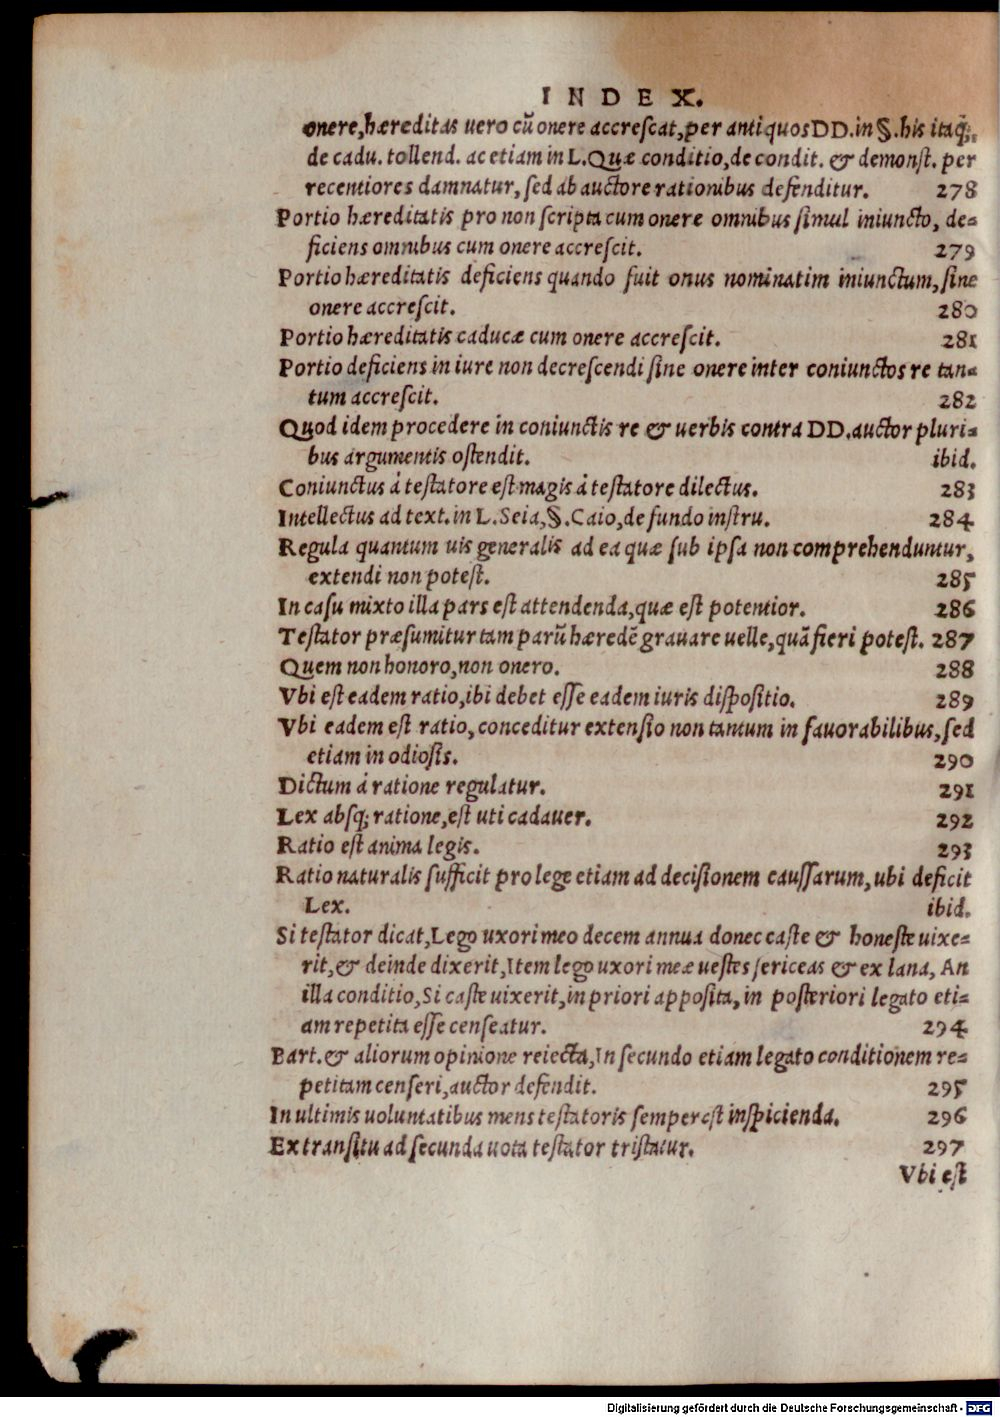 INDEX.
onere, hæreditas uero cū onere accrescat, per antiquos DD. in §. his itaq;,
de cadu. tollend. ac etiam in L. Quæ conditio, de condit. & demonst. per
recentiores damnatur, sed ab auctore rationibus defenditur. 278
Portio hæreditatis pro non scripta cum onere omnibus simul iniuncto, de=
ficiens omnibus cum onere accrescit. 279
Portio hæreditatis deficiens quando fuit onus nominatim iniunctum, sine
onere accrescit. 280
Portio hæreditatis caducæ cum onere accrescit. 281
Portio deficiens in iure non decrescendi sine onere inter coniunctos re tan=
tum accrescit. 282
Quod idem procedere in coniunctis re & uerbis contra DD. auctor pluri=
bus argumentis ostendit. ibid.
Coniunctus á testatore est magis á testatore dilectus. 283
Intellectus ad text. in L. Seia, §. Caio, de fundo instru. 284
Regula quantum uis generalis ad ea quæ sub ipsa non comprehenduntur,
extendi non potest. 285
In casu mixto illa pars est attendenda, quæ est potentior. 286
Testator præsumitur tam parū hæredē grauare uelle, quā fieri potest. 287
Quem non honoro, non onero. 288
Vbi est eadem ratio, ibi debet esse eadem iuris dispositio. 289
Vbi eadem est ratio, conceditur extensio non tantum in fauorabilibus, sed
etiam in odiosis. 290
Dictum á ratione regulatur. 291
Lex absq; ratione, est uti cadauer. 292
Ratio est anima legis. 293
Ratio naturalis sufficit pro lege etiam ad decisionem caussarum, ubi deficit
Lex. ibid.
Si testator dicat, Lego uxori meo decem annua donec caste & honeste uixe=
rit, & deinde dixerit, Item lego uxori meæ uestes sericeas & ex lana, An
illa conditio, Si caste uixerit, in priori apposita, in posteriori legato eti=
am repetita esse censeatur. 294
Bart. & aliorum opinione reiecta, In secundo etiam legato conditionem re=
petitam censeri, auctor defendit. 295
In ultimis uoluntatibus mens testatoris semper est inspicienda. 296
Ex transitu ad secunda uota testator tristatur. 297
Vbi est
Digitalisierung gefördert durch die Deutsche Forschungsgemeinschaft - DFG